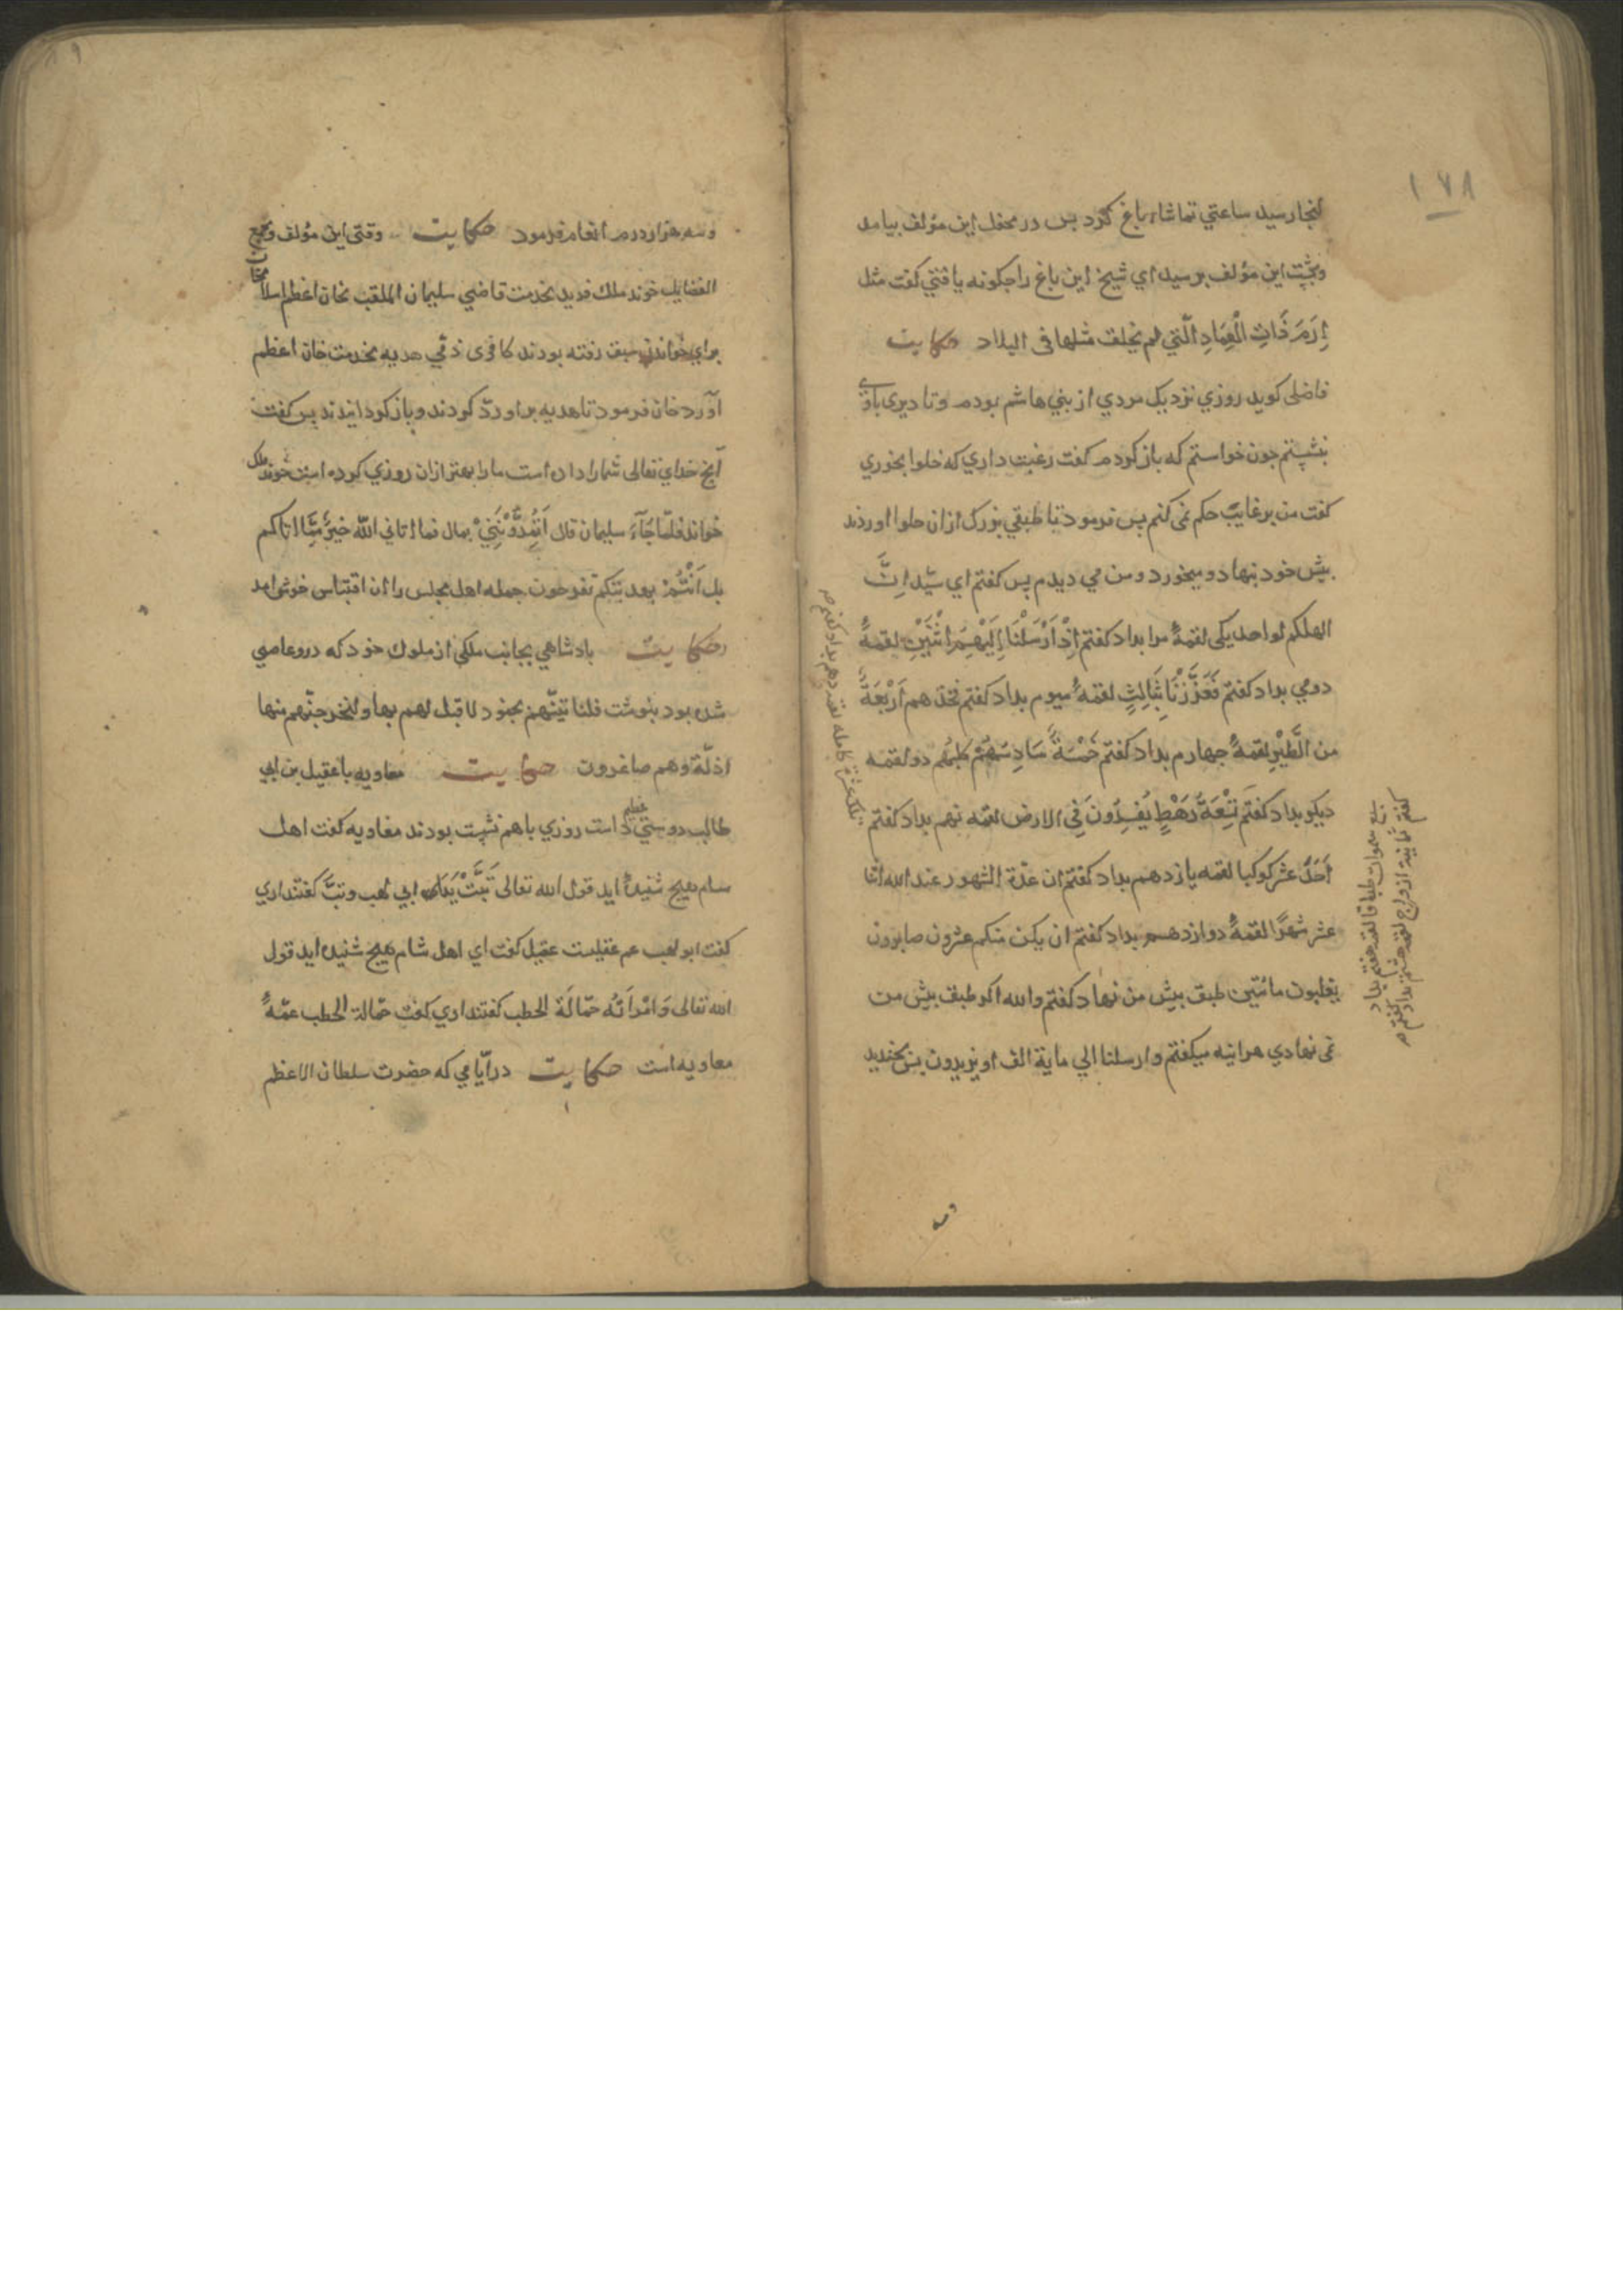 ۱۷۸
انجا رسید ساعتي تماشاء باغ کرد بس در محفل این مؤلف بیامد
این مؤلف برسید اي شیخ این باغ را جکونه یافتي کفت مثل
اِرَمَ ذَاتِ الْعِمَادِ الَّتي لم یخلق مثلها فی البلاد حکایت
فاضلی کوید روزي نزدیک مردي از بني هاشم بودم وتا دیری باوي
بنشستم جون خواستم که باز کردم کفت رغبت داري که حلوا بخوري
کفت من بر غایب حکم نمی کنم بس فرمود تا طبقي بزرک ازان حلوا اوردند
بیش خود بنهاد و میخورد و من می دیدم بس کفتم اي سیّد اِنَّ
الهکم لواحد یکی لقمهٔ مرا بداد کفتم اِذْ اَرْسَلْنَا اِلَیْهِمُ اثْنَیْنِ لقمهٔ
دومي بداد کفتم فَعَزَّزْنَا بِثَالِثٍ لقمهٔ سیوم بداد کفتم فخذ هم اَرْبَعَةً
من الطَّیْرِ لقمهٔ جهارم بداد کفتم خَمْسَةً سَادِسُهُمْ کلبُهُم دو لقمه
دیکر بداد کفتم تِسْعَةُ رَهْطٍ یُفْسِدُونَ فِی الارض لقمه نهم بداد کفتم
اَحَدَ عشر کوکبا لقمه یازدهم بداد کفتم ان عدّة الشهور عند الله اثنا
عشر شهرًا لقمهٔ دوازدهم بداد کفتم ان یکن منکم عشرون صابرون
یغلبون مائتین طبق بیش من نهاد کفتم والله اکر طبق بیش من
نمی نهادي هراینه میکفتم وارسلنا الي مایة الف او یزیدون بس بخندید
سبع سموات طباقا لقمه هفتم بداد
کفتم ثمانیة ازواج لقمه هشتم بداد کفتم
تلک عشرة کامله لقمه دهم بداد کفتم
وسه
وسه هزار درم انعام فرمود حکایت وقتی این مؤلف ومجمع
الفضایل خوند ملک فرید بخدمت قاضي سلیمان الملقب بخان اعظم اسلامخان
براي خواندن سبق رفته بودند کافری ذمّي هدیه بخدمت خان اعظم
آورد خان فرمود تا هدیه بر او ردّ کردند و باز کردانیدند بس کفت
آنج خداي تعالی شما را داده است ما را بهتر ازان روزي کرده است خوند ملک
خواند فلمّا جَآءَ سلیمان قال اَتُمِدُّوْنَنِيْ بمال فما اتاني الله خیرٌ مِّمَّا اتاکم
بل اَنْتُمْ بهدیتکم تفرحون جمله اهل مجلس را ان اقتباس خوش امد
حکایت بادشاهي بجانب ملکي از ملوک خود که درو عاصي
شده بود بنوشت فلنا تینّهم بجنود لا قبل لهم بها ولنخرجنّهم منها
اذلّة وهم صاغرون حکایت معاویه با عقیل بن ابي
طالب دوستي عظیم داست روزي باهم نشست بودند معاویه کفت اهل
سام هیج شنیدهٔ اید قول الله تعالی تَبَّتْ یَدَا ابي لهب وتبّ کفتند اري
کفت ابو لهب عم عقیلست عقیل کفت اي اهل شام هیج شنیده اید قول
الله تعالی وَامْرَاَتُه حمّالَةَ الحطب کفتند اري کفت حمّالة الحطب عمّهٔ
معاویه است حکایت در ایّامي که حضرت سلطان الاعظم